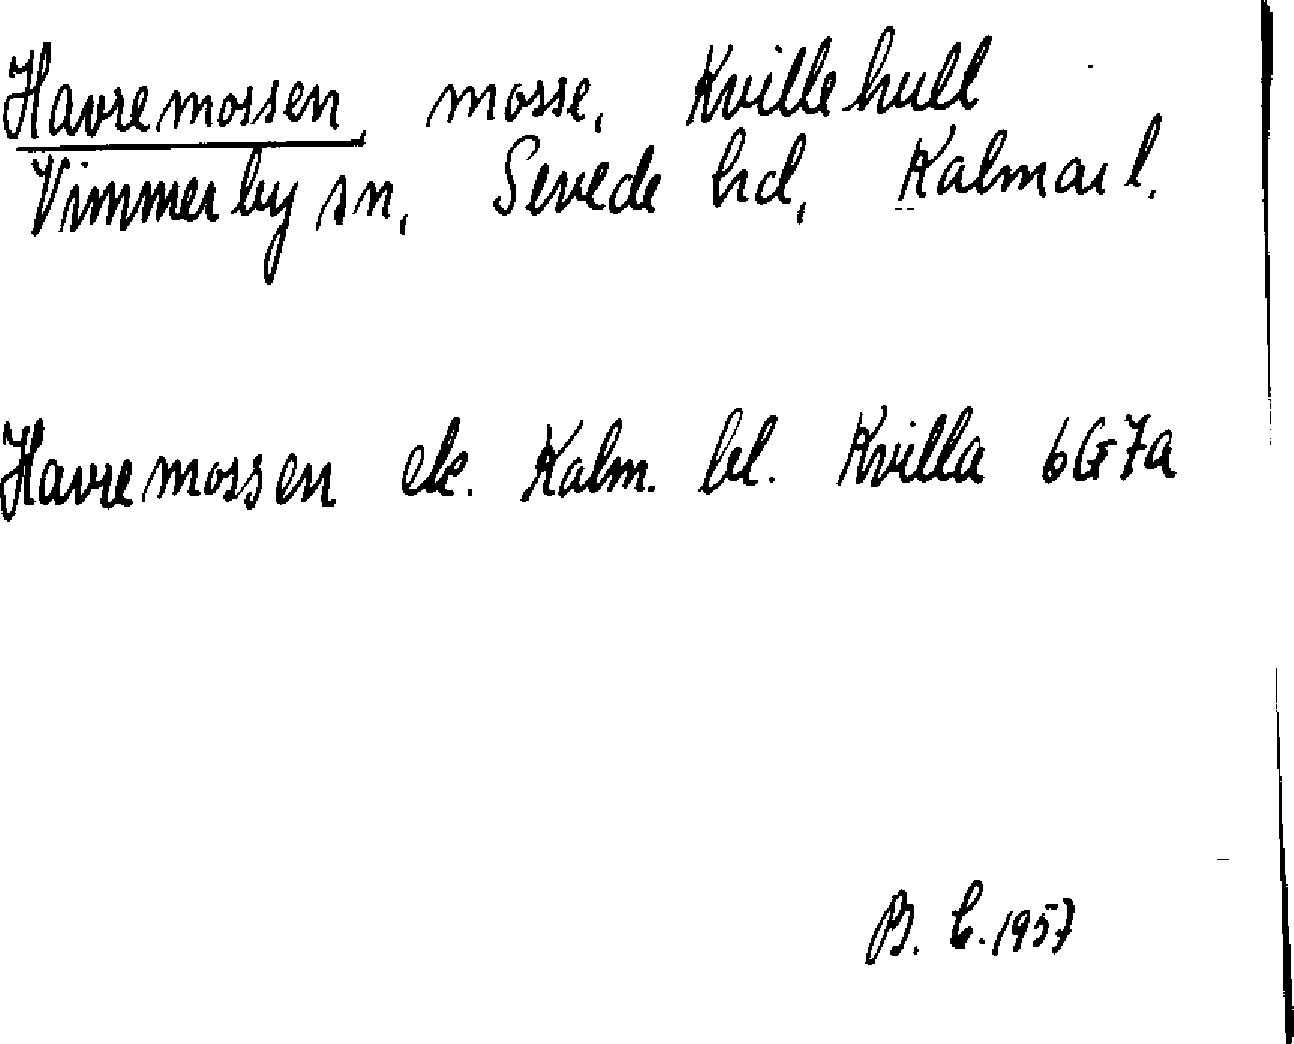 Havremossen, mosse, Kvillehult
Vimmerby sn, Sevede hd, Kalmar l.
Havremossen ek. Kalm. bl. Kvilla 6G7a
B. E. 1957